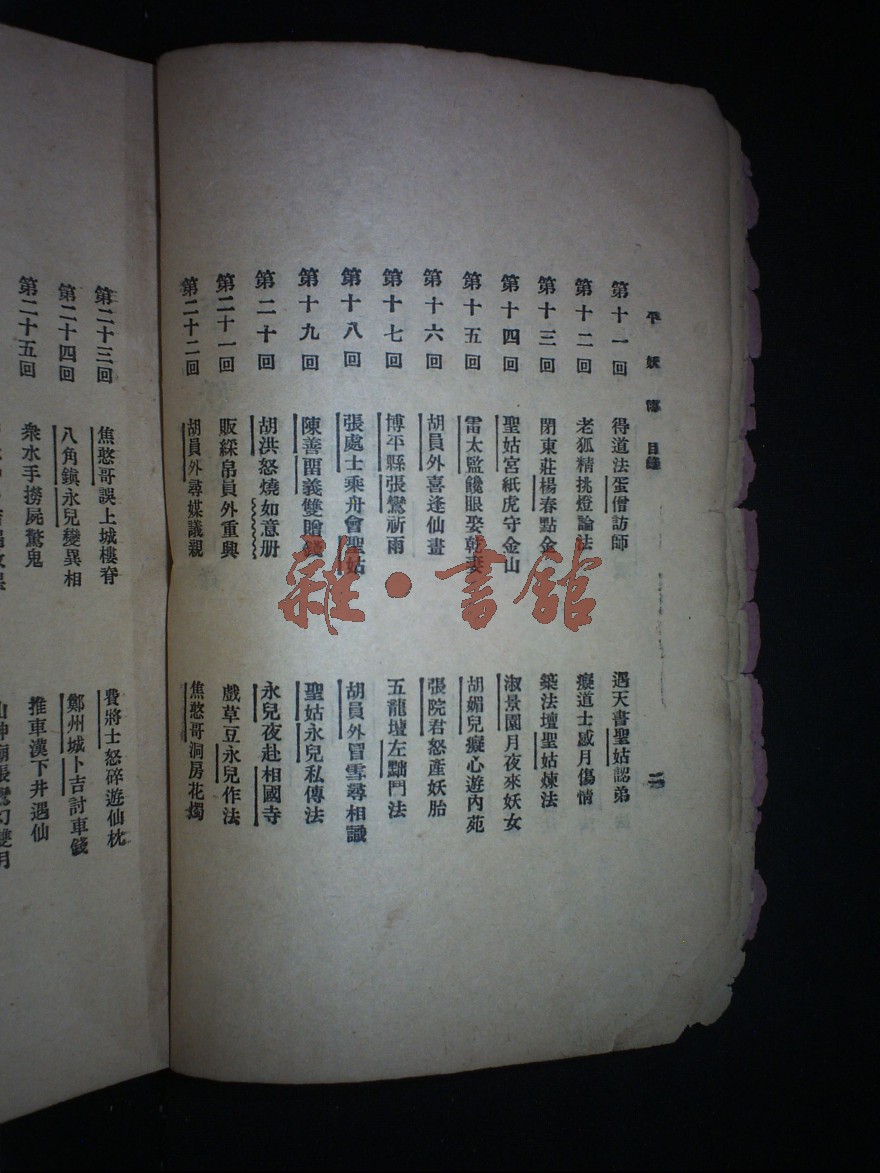 平妖傳 目錄 二
第十一回 得道法蛋僧訪師 遇天書聖姑認弟
第十二回 老狐精挑燈論法 癡道士感月傷情
第十三回 閉東莊楊春點金 築法壇聖姑煉法
第十四回 聖姑宮紙虎守金山 淑景園月夜來妖女
第十五回 雷太監饞眼娶乾妻 胡媚兒癡心遊內苑
第十六回 胡員外喜逢仙畫 張院君怒產妖胎
第十七回 博平縣張鸞祈雨 五龍壇左黜鬥法
第十八回 張處士乘舟會聖姑 胡員外冒雪尋相識
第十九回 陳善畱義雙贈錢 聖姑永兒私傳法
第二十回 胡洪怒燒如意册 永兒夜赴相國寺
第二十一回 販綵帛員外重興 戲草豆永兒作法
第二十二回 胡員外尋媒議親 焦憨哥洞房花燭
第二十三回 焦憨哥誤上城樓脊 費將士怒碎遊仙枕
第二十四回 八角鎮永兒變異相 鄭州城卜吉討車錢
第二十五回 衆水手撈屍驚鬼 推車漢下井遇仙
雜·書館